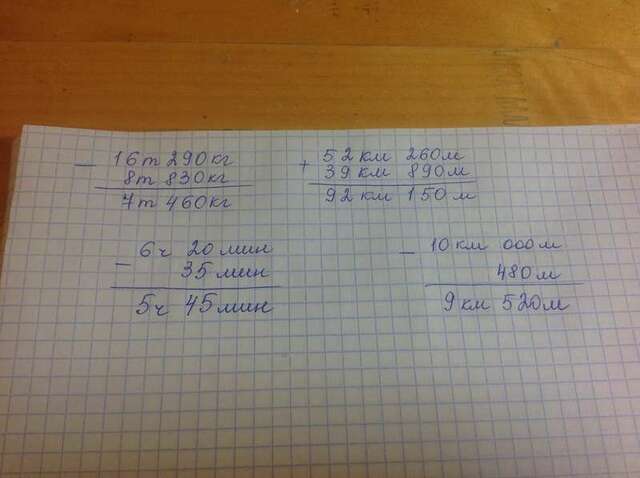 - 16т 290кг
8т 830кг
7т 460кг
+ 52км 260м
39км 890м
92км 150м
6ч 20мин
- 35мин
5ч 45мин
- 10км 000м
480м
9км 520м